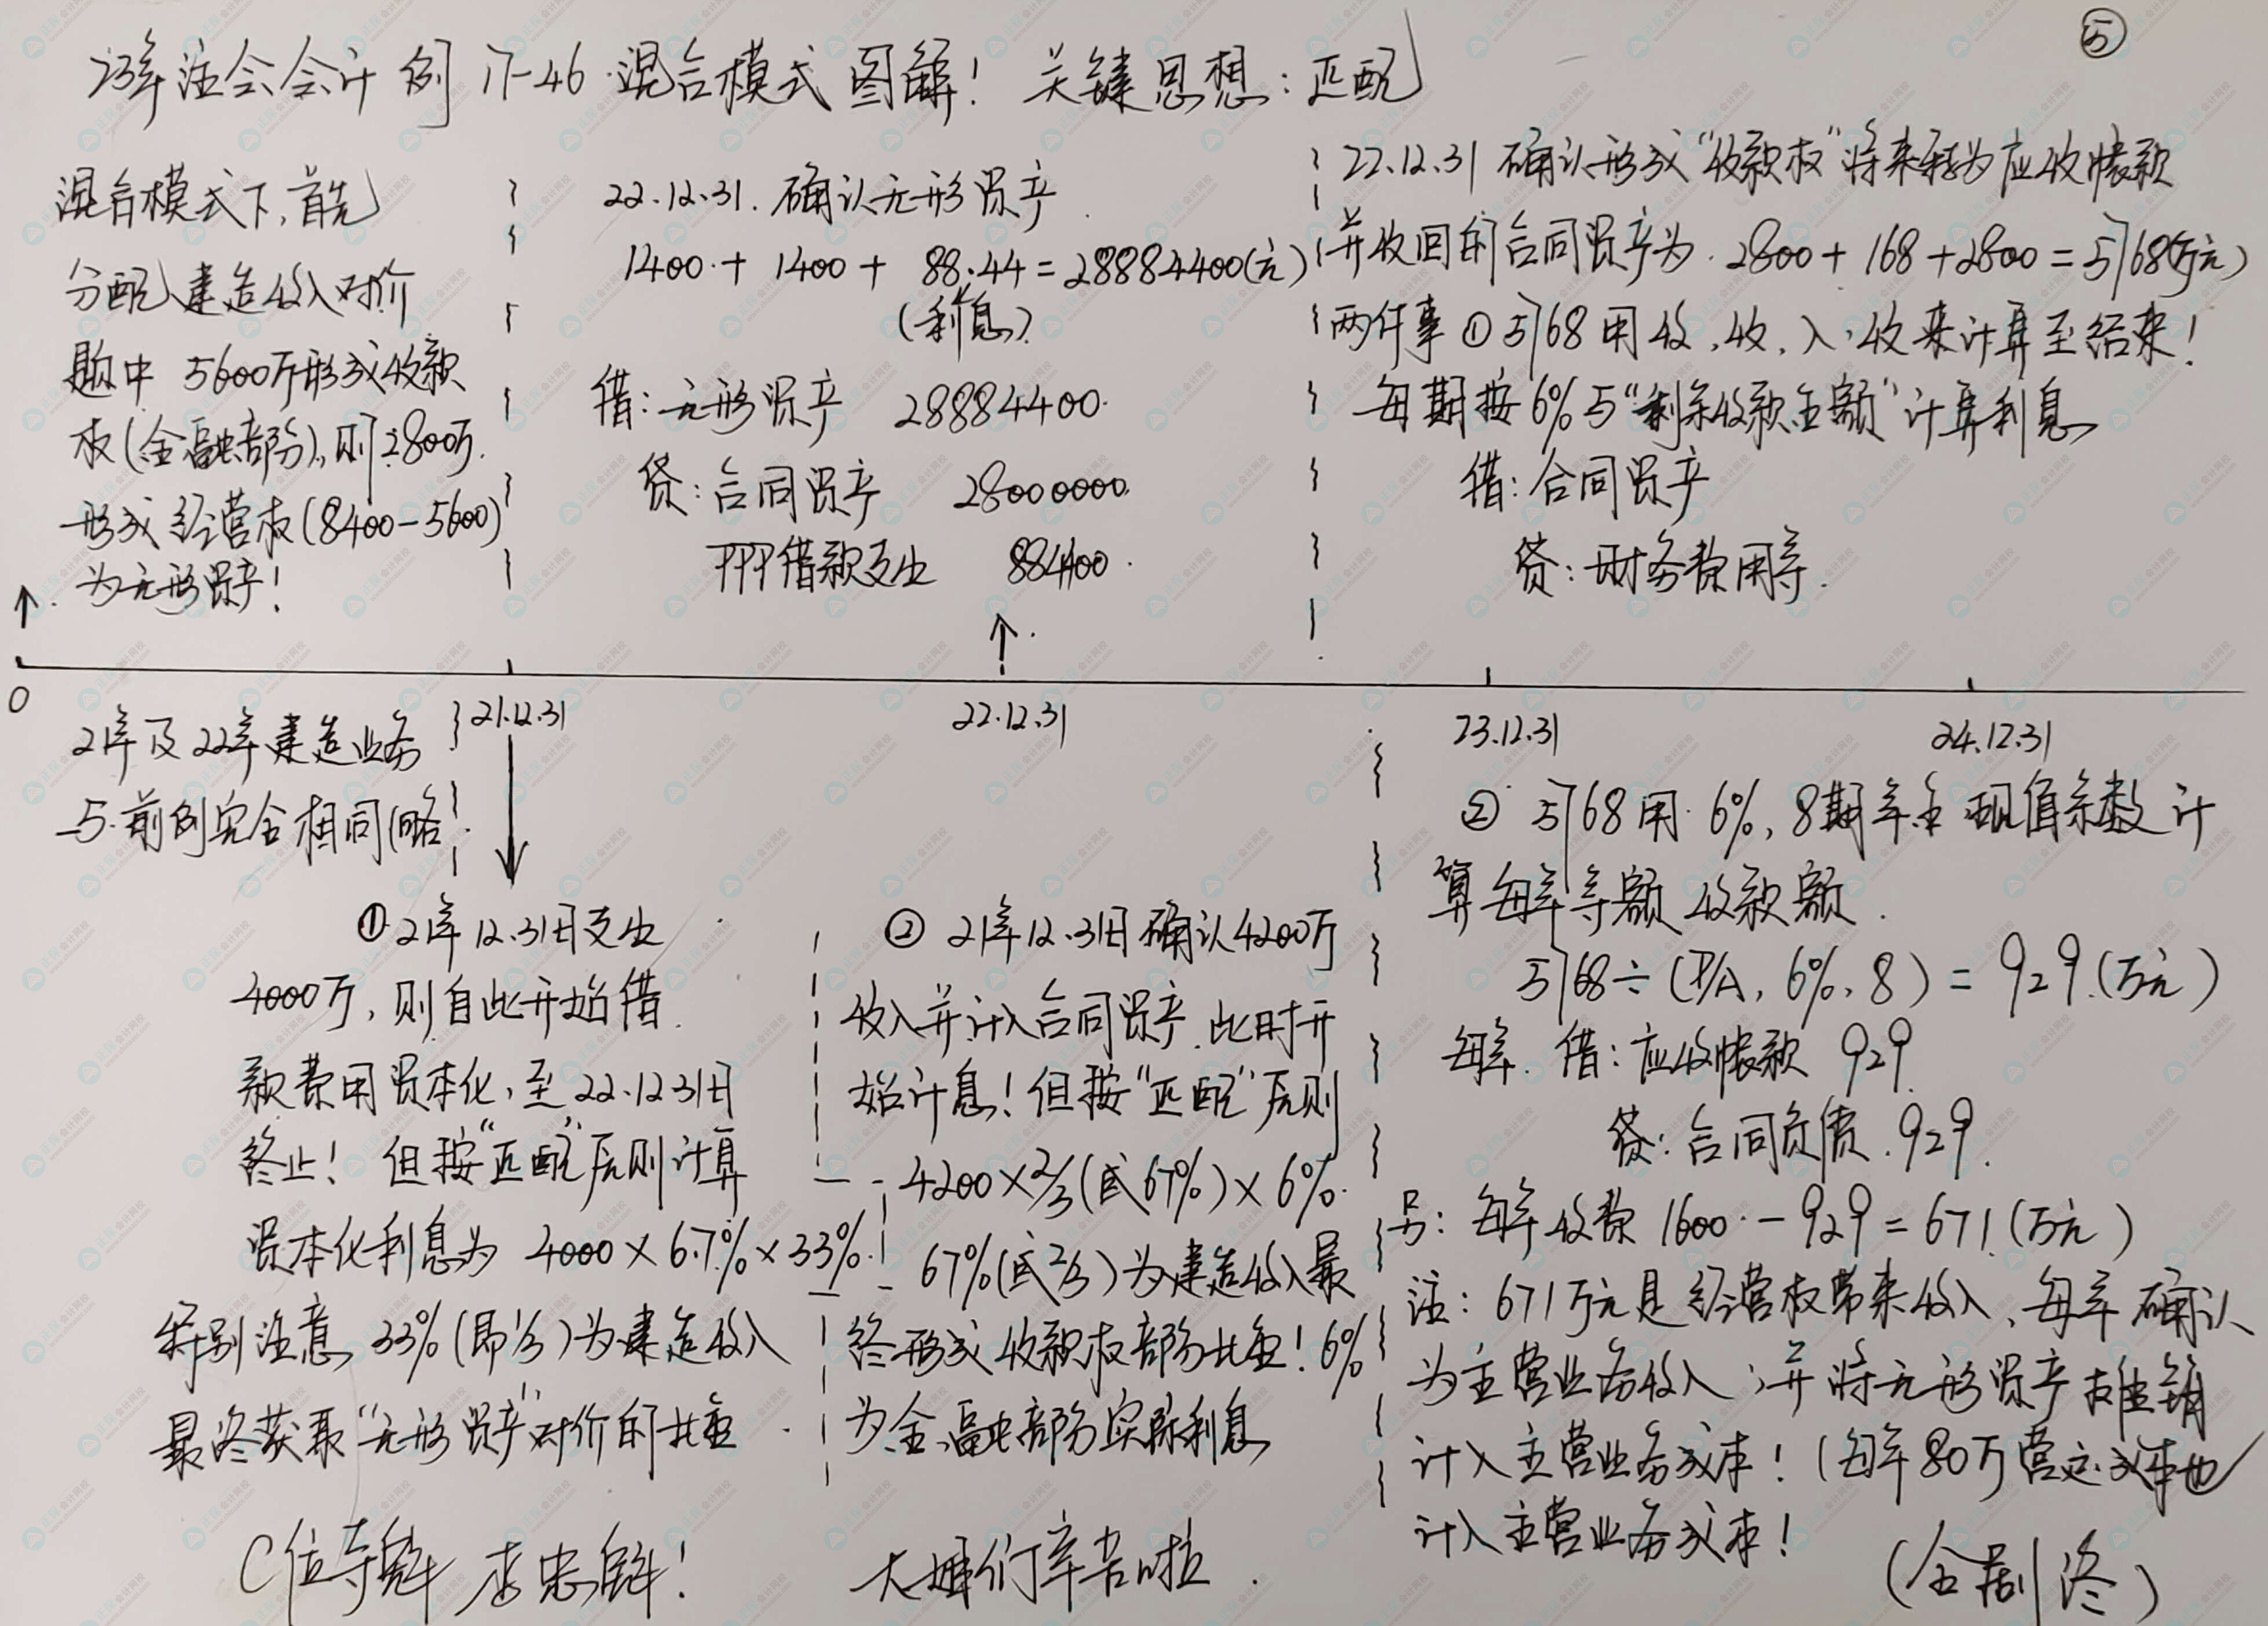 ⑤
23年注会会计 例 17-46 混合模式 图解! 关键思想:匹配
混合模式下,首先
分配建造收入对价
题中 5600万形成收款
权(金融部分),则2800万
形成经营权(8400-5600)
为无形资产!
22.12.31. 确认无形资产
1400+1400+88.44=28884400(元)
(利息)
借:无形资产 28884400
贷:合同资产 28000000
PPP借款支出 884400
22.12.31 确认形成“收款权”将来转为应收帐款
并收回的合同资产为 2800+168+2800=5768(万元)
两件事①5768用收,收,入,收来计算至结束!
每期按6%与“剩余收款金额”计算利息
借:合同资产
贷:财务费用等
0
21.12.31
22.12.31
23.12.31
24.12.31
21年及22年建造业务
与前例完全相同(略
①21年12.31日支出
4000万,则自此开始借
款费用资本化,至22.12.31日
终止!但按“匹配”原则计算
资本化利息为 4000×6.7%×33%
特别注意,33%(即1/3)为建造收入
最终获取“无形资产”对价的比重
②21年12.31日确认4200万
收入并计入合同资产,此时开
始计息!但按“匹配”原则
4200×2/3(或67%)×6%
67%(或2/3)为建造收入最
终形成收款权部分比重!6%
为金融部分实际利息
② 5768用6%,8期年金现值系数计
算每年等额收款额
5768÷(P/A,6%,8)=929(万元)
每年 借:应收帐款 929
贷:合同负债 929
另:每年收费 1600-929=671(万元)
注:671万元是经营权带来收入,每年确认
为主营业务收入;并将无形资产摊销
计入主营业务成本!(每年80万营运成本也
计入主营业务成本!
C位夺魁 李忠魁!
大婶们辛苦啦
(全剧终)
正保会计网校